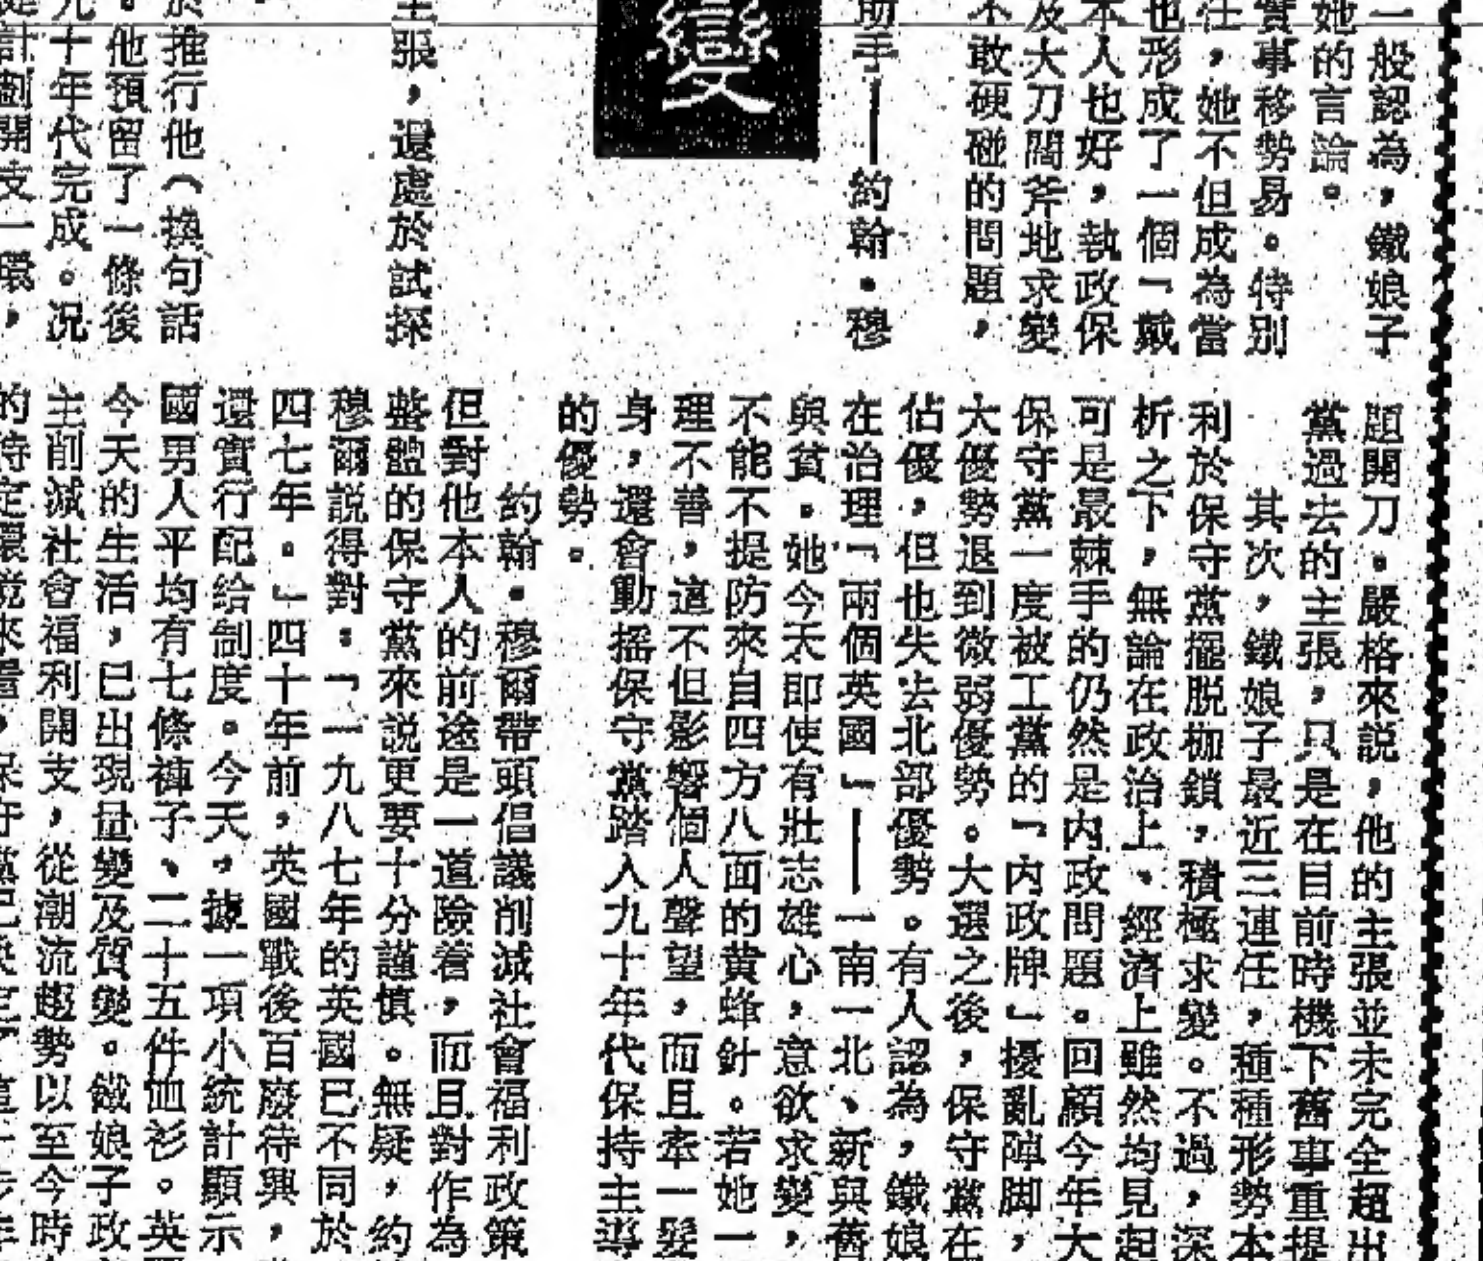 一般認為，鐵娘子
她的言論。
實事移勢易。特別
任，她不但成為當
也形成了一個「戴
本人也好，執政保
及大刀闊斧地求變
不敢硬碰的問題，
助手——約翰・穆
變
主張，還處於試探
於推行他（換句話
。他預留了一條後
九十年代完成。況
計劃開支一環，
題開刀。嚴格來説，他的主張並未完全超出
黨過去的主張，只是在目前時機下舊事重提
其次，鐵娘子最近三連任，種種形勢本
利於保守黨擺脱枷鎖，積極求變。不過，深
析之下，無論在政治上、經濟上雖然均見起
可是最棘手的仍然是內政問題。回顧今年大
保守黨一度被工黨的「內政牌」擾亂陣脚，
大優勢退到微弱優勢。大選之後，保守黨在
佔優，但也失去北部優勢。有人認為，鐵娘
在治理「兩個英國」——一南一北、新與舊
與貧。她今天即使有壯志雄心，意欲求變，
不能不提防來自四方八面的黄蜂針。若她一
理不善，這不但影響個人聲望，而且牽一髮
身，還會動摇保守黨踏入九十年代保持主導
的優勢。
約翰・穆爾帶頭倡議削減社會福利政策
但對他本人的前途是一道險着，而且對作為
整體的保守黨來説更要十分謹慎。無疑，約
穆爾説得對：「一九八七年的英國已不同於
四七年。」四十年前，英國戰後百廢待興，
還實行配给制度。今天，據一項小統計顯示
國男人平均有七條褲子、二十五件恤衫。英
今天的生活，已出現量變及質變。鐵娘子政
主削減社會福利開支，從潮流趨勢以至今時
的特定環境來看，保守黨已決定了這一步